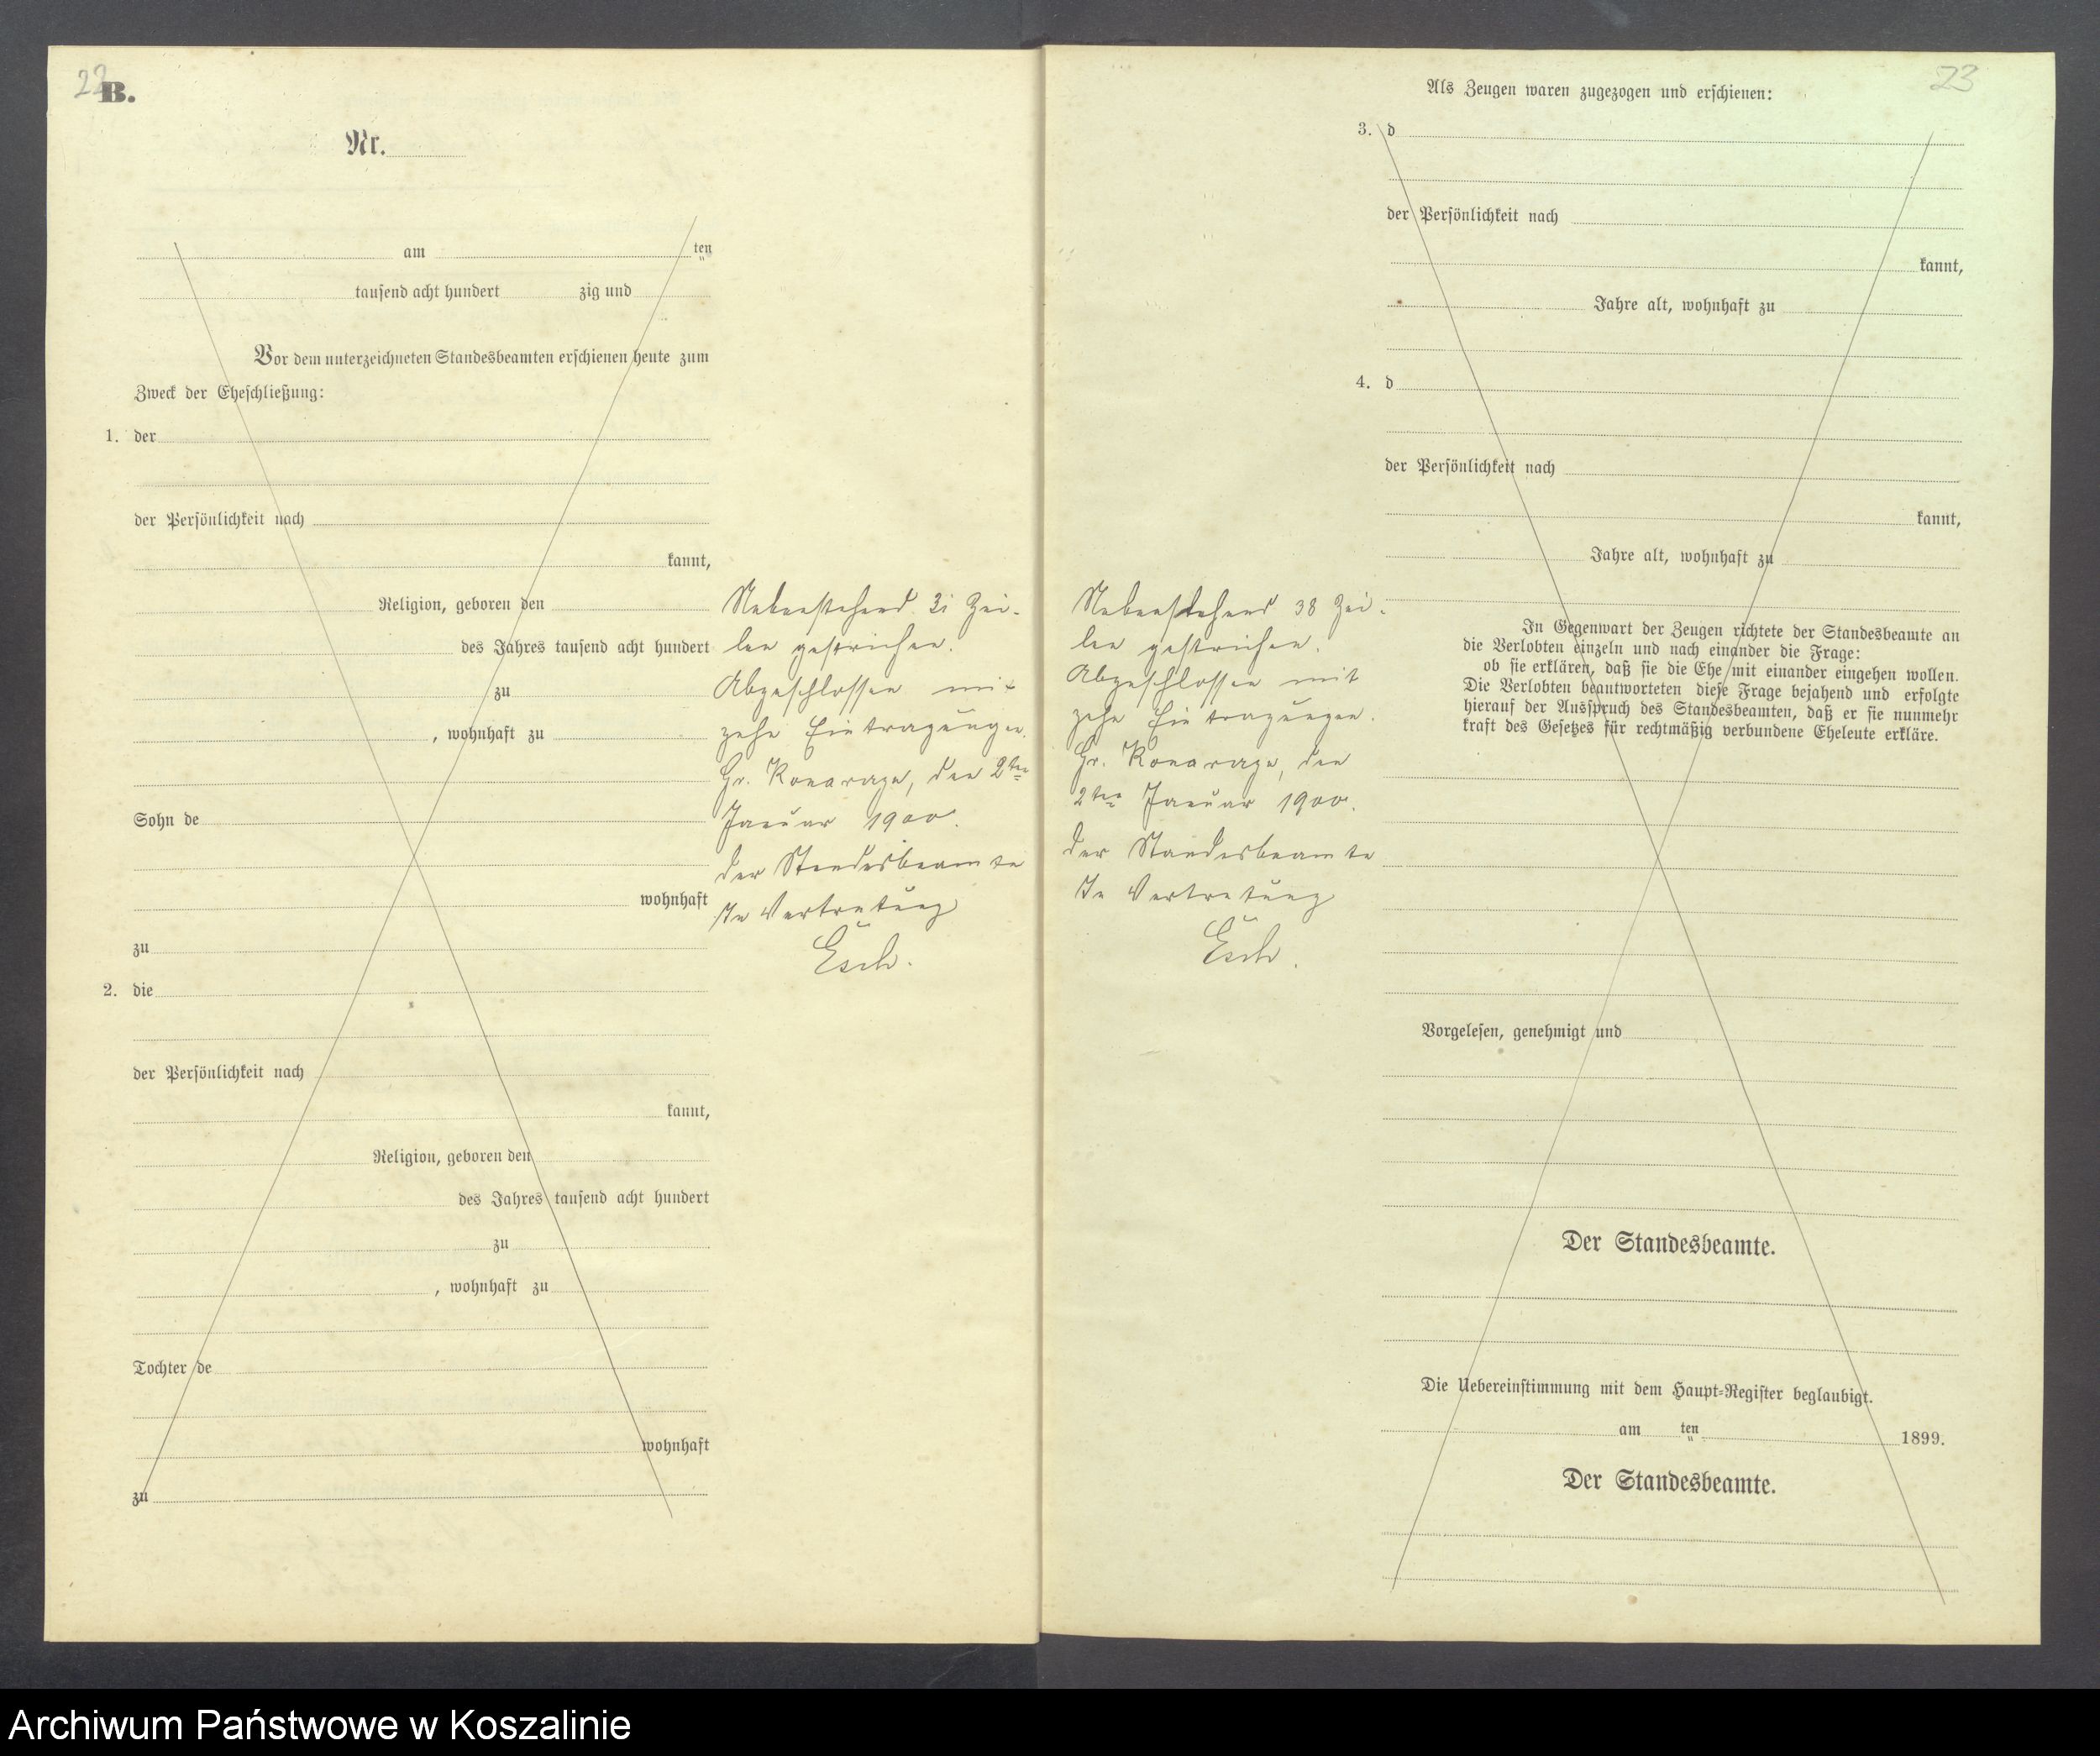 22
B.
Nr.
am ten
tausend acht hundert zig und
Vor dem unterzeichneten Standesbeamten erschienen heute zum
Zweck der Eheschließung:
1. der
der Persönlichkeit nach
kannt,
Religion, geboren den
des Jahres tausend acht hundert
zu
, wohnhaft zu
Sohn de
wohnhaft
zu
2. die
der Persönlichkeit nach
kannt,
Religion, geboren den
des Jahres tausend acht hundert
zu
, wohnhaft zu
Tochter de
wohnhaft
zu
Nebenstehend 31 Zei-
len gestrichen.
Abgeschlossen mit
zehn Eintragungen.
Gr. Konarage, den 2ten
Januar 1900.
der Standesbeamte
In Vertretung
Esch.
23
Als Zeugen waren zugezogen und erschienen:
3. d
der Persönlichkeit nach
kannt,
Jahre alt, wohnhaft zu
4. d
der Persönlichkeit nach
kannt,
Jahre alt, wohnhaft zu
In Gegenwart der Zeugen richtete der Standesbeamte an
die Verlobten einzeln und nach einander die Frage:
ob sie erklären, daß sie die Ehe mit einander eingehen wollen.
Die Verlobten beantworteten diese Frage bejahend und erfolgte
hierauf der Ausspruch des Standesbeamten, daß er sie nunmehr
kraft des Gesetzes für rechtmäßig verbundene Eheleute erkläre.
Nebenstehend 38 Zei-
len gestrichen.
Abgeschlossen mit
zehn Eintragungen.
Gr. Konarage, den
2ten Januar 1900.
der Standesbeamte
In Vertretung
Esch.
Vorgelesen, genehmigt und
Der Standesbeamte.
Die Uebereinstimmung mit dem Haupt-Register beglaubigt.
am ten 1899.
Der Standesbeamte.
Archiwum Państwowe w Koszalinie